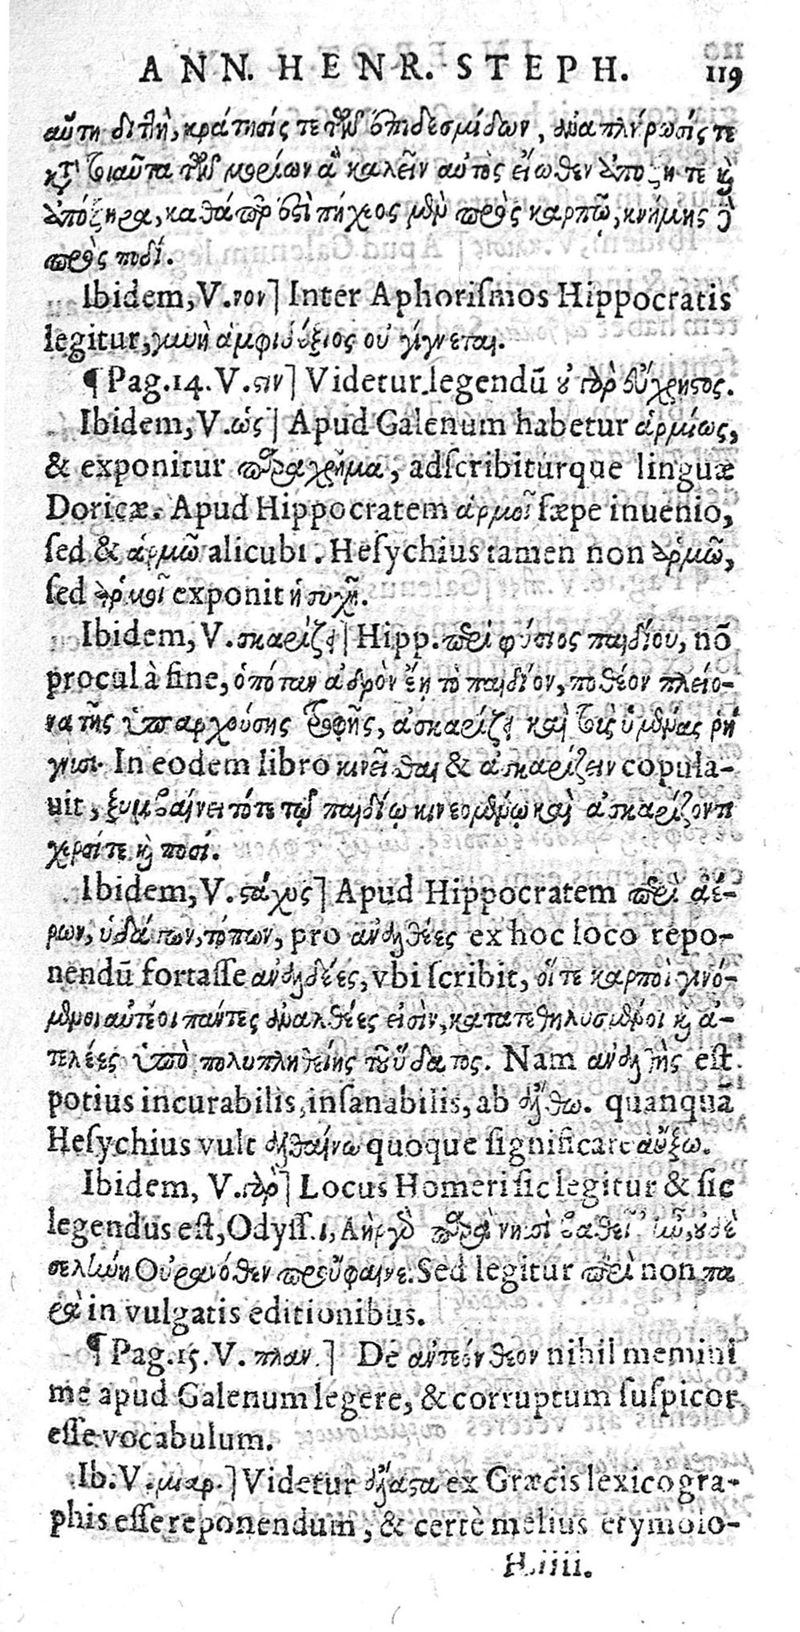 ANN. HENR. STEPH. 119
αὕτη διπλῆ, κράτησίς τε τῶν ἐπιδεσμίδων, ἀναπλήρωσίς τε
κατὰ τοιαῦτα τῶν μορίων ἃ καλεῖν αὐτὸς εἴωθεν ἀπόξη τε καὶ
ἀπόξηρα, καθάπερ ἐπὶ πήχεος μὲν πρὸς καρπῷ, κνήμης δὲ
πρὸς ποδί.
Ibidem, V. τον] Inter Aphoriſmos Hippocratis
legitur, γυνὴ ἀμφιδέξιος οὐ γίγνεται.
¶ Pag. 14. V. ϛιν] Videtur legendū οὐ γὰρ εὔχρηϛος.
Ibidem, V. ὡς] Apud Galenum habetur ἁρμίως,
& exponitur παραχρῆμα, adſcribiturque linguæ
Doricæ. Apud Hippocratem ἁρμοῖ ſæpe inuenio,
ſed & ἁρμῶ alicubi. Heſychius tamen non ἁρμῶ,
ſed ἁρμοῖ exponit ἡσυχῆ.
Ibidem, V. σκαρίζει] Hipp. περὶ φύσιος παιδίου, nō
procul à fine, ὁπόταν ἁδρὸν ἔῃ τὸ παιδίον, ποθέον πλείο-
να τῆς ὑπαρχούσης τροφῆς, ἀσκαρίζει καὶ τοὺς ὑμένας ῥή
γνυσι. In eodem libro κινεῖσθαι & ἀσκαρίζειν copula-
uit, ξυμβαίνει τότε τῷ παιδίῳ κινεομένῳ καὶ ἀσκαρίζοντι
χερσί τε καὶ ποσί.
Ibidem, V. ϛάχυς] Apud Hippocratem περὶ ἀέ-
ρων, ὑδάτων, τόπων, pro ἀναλθέες ex hoc loco repo-
nendū fortaſſe ἀναλδέες, vbi ſcribit, οἵ τε καρποὶ γινό-
μενοι αὐτέοι πάντες ἀναλθέες εἰσὶν, κατατεθηλυσμένοι καὶ ἀ-
τελέες ὑπὸ πολυπληθείης τοῦ ὕδατος. Nam ἀναλθὴς eſt
potius incurabilis, inſanabilis, ab ἄλθω. quanquā
Heſychius vult ἀλθαίνω quoque ſignificare αὔξω.
Ibidem, V. γὰρ] Locus Homeri ſic legitur & ſic
legendus eſt, Odyſſ. ι, Ἀὴρ γὰρ παρὰ νηυσὶ βαθεῖ' ἦν, οὐδὲ
σελήνη Οὐρανόθεν προὔφαινε. Sed legitur περὶ non πα
ρὰ in vulgatis editionibus.
¶ Pag. 15. V. πλαν.] De nihil memini
me apud Galenum legere, & corruptum ſuſpicor
eſſe vocabulum.
Ib. V. μιαρ.] Videtur ἀλάϛα ex Græcis lexicogra-
phis eſſe reponendum, & certè melius etymolo-
H. iiii.